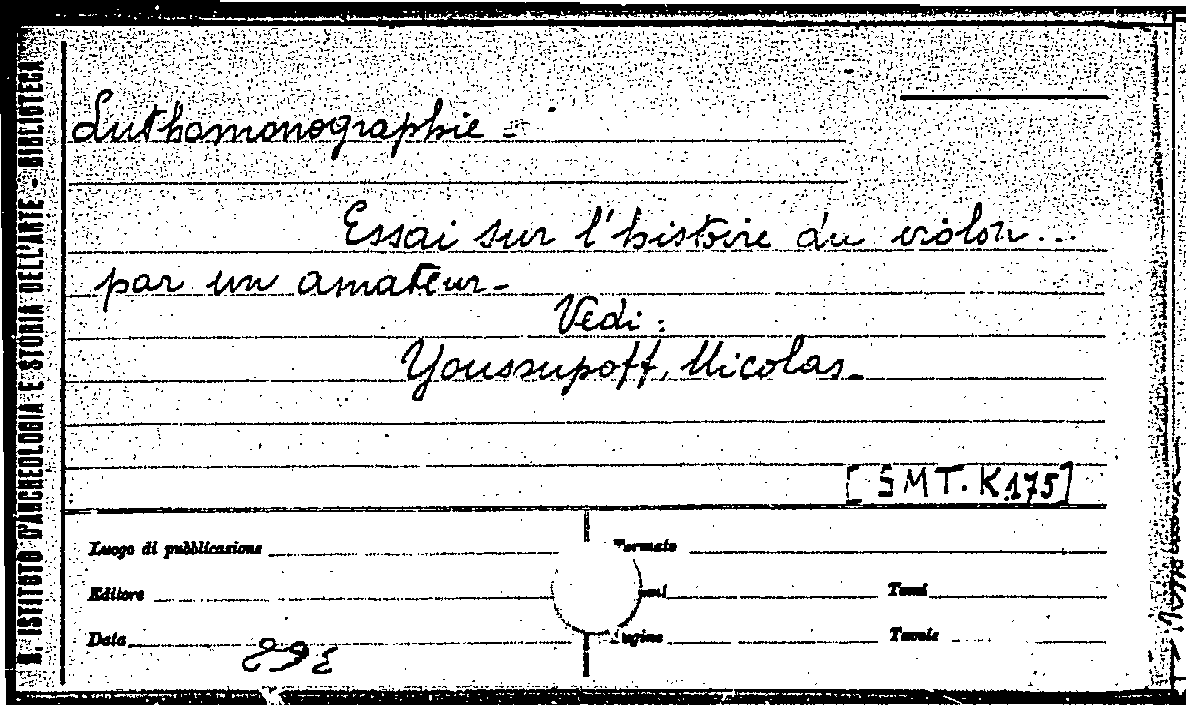 R. ISTITUTO D'ARCHEOLOGIA E STORIA DELL'ARTE - BIBLIOTECA
Luthomonographie -
Essai sur l'histoire du violon...
par un amateur -
Vedi:
Youssupoff, Nicolas -
[SMT. K.175]
Luogo di pubblicazione
Formato
Editore
Tomi
Data
Pagine
Tavole